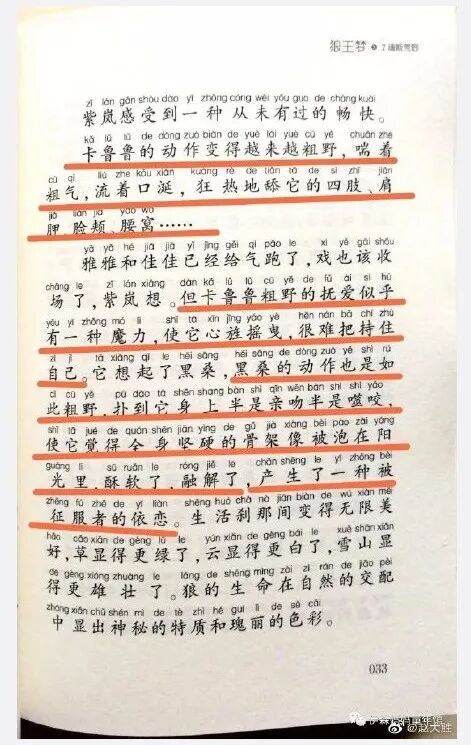 狼王梦
zǐ lán gǎn shòu dào yī zhǒng cóng wèi yǒu guo de chàng kuài
紫岚感受到一种从未有过的畅快。
kǎ lǔ lǔ de dòng zuò biàn de yuè lái yuè cū yě chuǎn zhe
卡鲁鲁的动作变得越来越粗野，喘着
cū qì liú zhe kǒu xián kuáng rè de tiǎn tā de sì zhī jiān
粗气，流着口涎，狂热地舔它的四肢、肩
jiǎ liǎn jiá yāo wō
胛、脸颊、腰窝……
yǎ yǎ hé jiā jiā yǐ jīng gěi qì pǎo le xì yě gāi shōu
雅雅和佳佳已经给气跑了，戏也该收
chǎng le zǐ lán xiǎng dàn kǎ lǔ lǔ cū yě de fǔ ài sì hū
场了，紫岚想。但卡鲁鲁粗野的抚爱似乎
yǒu yī zhǒng mó lì shǐ tā xīn jīng yáo yè hěn nán bǎ chí zhù
有一种魔力，使它心旌摇曳，很难把持住
zì jǐ tā xiǎng qǐ le hēi sāng hēi sāng de dòng zuò yě shì rú
自己。它想起了黑桑，黑桑的动作也是如
cǐ cū yě pū dào tā shēn shang bàn shì qīn wěn bàn shì shì yǎo
此粗野，扑到它身上半是亲吻半是噬咬，
shǐ tā jué de quán shēn jiān yìng de gǔ jià xiàng bèi pào zài yáng
使它觉得全身坚硬的骨架像被泡在阳
guāng lǐ sū ruǎn le róng jiě le chǎn shēng le yī zhǒng bèi
光里，酥软了，融解了，产生了一种被
zhēng fú zhě de yī liàn shēng huó chà nà jiān biàn de wú xiàn měi
征服者的依恋。生活刹那间变得无限美
hǎo cǎo xiǎn de gèng lǜ le yún xiǎn de gèng bái le xuě shān xiǎn
好，草显得更绿了，云显得更白了，雪山显
de gèng xióng zhuàng le láng de shēng mìng zài zì rán de jiāo pèi
得更雄壮了。狼的生命在自然的交配
zhōng xiǎn chū shén mì de tè zhì hé guī lì de sè cǎi
中显出神秘的特质和瑰丽的色彩。
033
@赵大胜